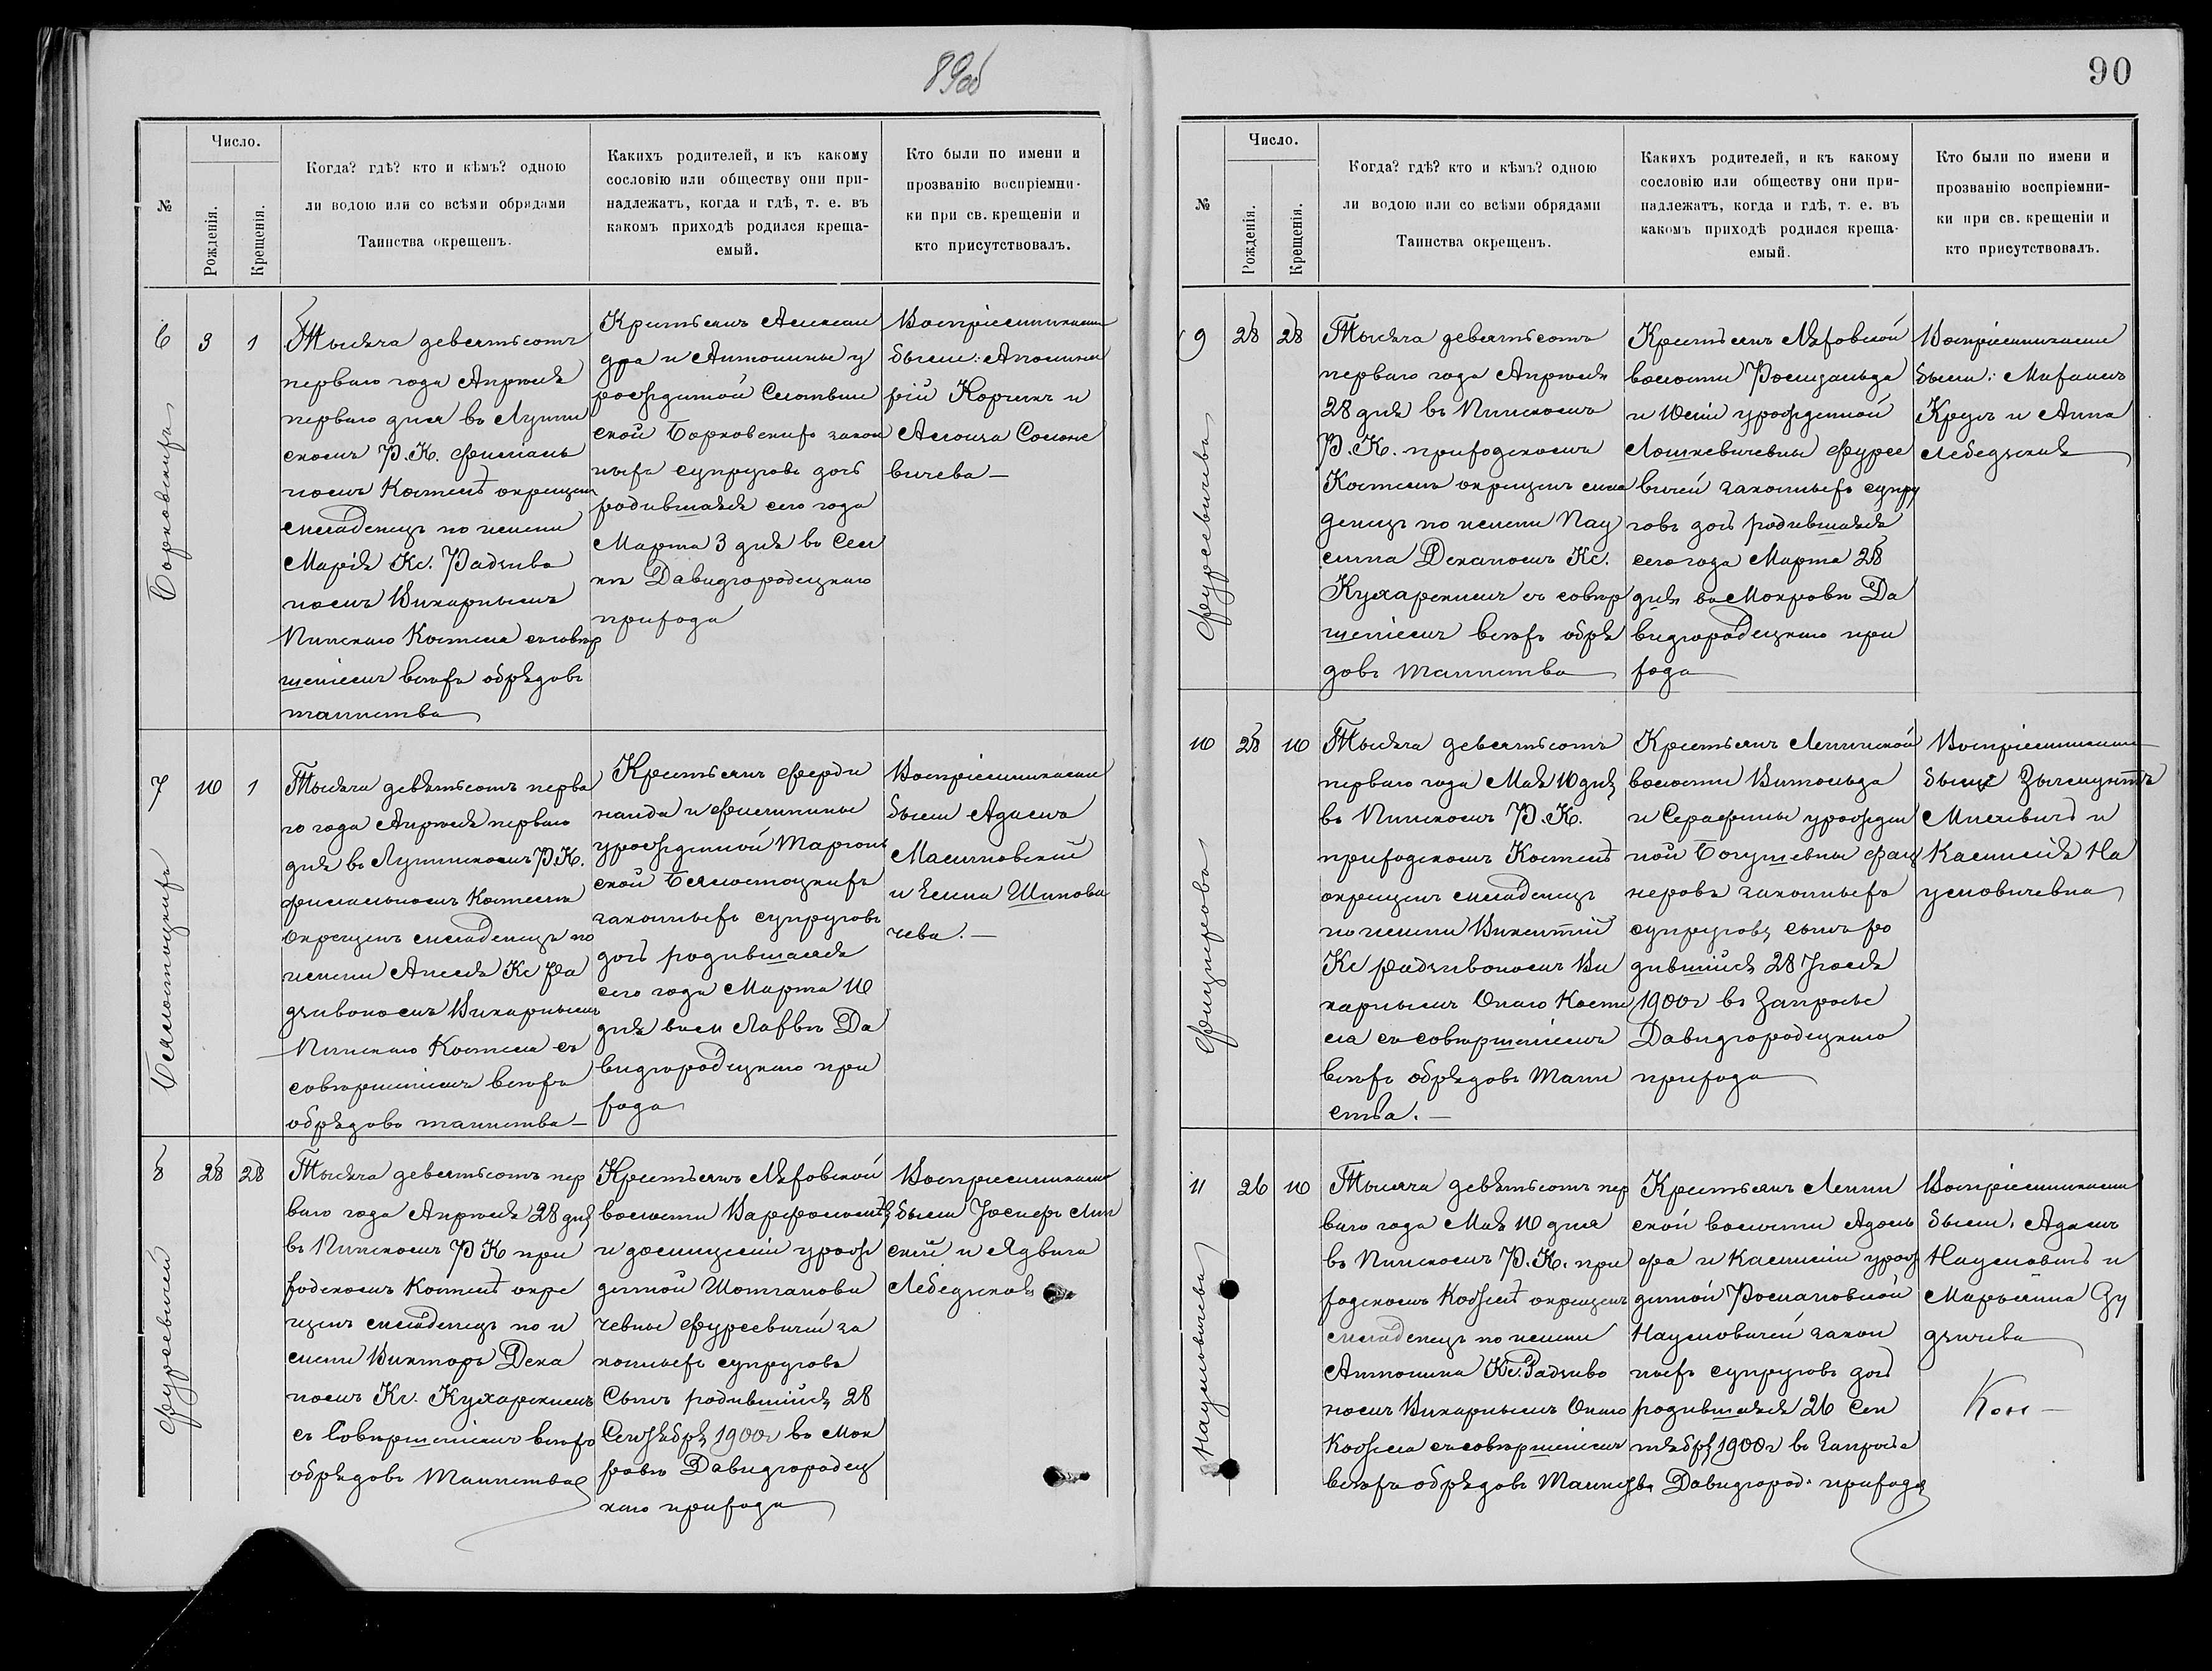 89об
№
Число.
Рожденія.
Крещенія.
Когда? гдѣ? кто и кѣмъ? одною
ли водою или со всѣми обрядами
Таинства окрещенъ.
Какихъ родителей, и къ какому
сословію или обществу они при-
надлежатъ, когда и гдѣ, т. е. въ
какомъ приходѣ родился креща-
емый.
Кто были по имени и
прозванію воспріемни-
ки при св. крещеніи и
кто присутствовалъ.
6
3
1
Борковскихъ
Тысяча девятьсотъ
перваго года Апрѣля
перваго дня въ Лунин
скомъ Р.К. филіаль
номъ Костелѣ окрещенъ
младенецъ по имени
Марія Кс. Радзиво
номъ Викарнымъ
Пинскаго Костела съ совѣр
шеніемъ всѣхъ обрядовъ
таинства
Крестьянъ Алексан
дра и Антонины у
рожденной
ской Борковскихъ закон
ныхъ супруговъ дочь
родившаяся сего года
Марта 3 дня въ
Давидгородецкаго
прихода
Воспріемниками
были: Аполина
рій Корженъ и
Алоиза Солоне
вичева —
7
10
1
Бѣлостоцкихъ
Тысяча девятьсотъ перва
го года Апрѣля перваго
дня въ Лунинскомъ Р.К.
филіальномъ Костелѣ
Окрещенъ младенецъ по
имени Анеля Кс Ра
дзивономъ Викарнымъ
Пинскаго Костела съ
совѣршеніемъ всѣхъ
обрядовъ таинства —
Крестьянъ Ферди
нанда и Филипины
урожденной Маргонь
ской Бялостоцкихъ
законныхъ супруговъ
дочь родившаяся
сего года Марта 10
дня въ им Лахвѣ Да
видгородецкаго при
хода
Воспріемниками
были Адамъ
Малиновскій
и Елена Шипови
чева. —
8
28
28
Фурсевичей
Тысяча девятьсотъ пер
ваго года Апрѣля 28 дня
въ Пинскомъ Р К при
ходскомъ Костелѣ окре
щенъ младенецъ по и
мени Викторъ Дека
номъ Кс. Кухарскимъ
съ Совѣршеніемъ всѣхъ
обрядовъ Таинства
Крестьянъ Ляховской
волости Варфоломѣя
и Домицеліи урож
денной
чевны Фурсевичей за
конныхъ супруговъ
Сынъ родившійся 28
Сентября 1900г въ Мок
ровѣ Давидгородец
каго прихода
Воспріемниками
были Іосифъ Лип
скій и Ядвига
Лебедзская
90
№
Число.
Рожденія.
Крещенія.
Когда? гдѣ? кто и кѣмъ? одною
ли водою или со всѣми обрядами
Таинства окрещенъ.
Какихъ родителей, и къ какому
сословію или обществу они при-
надлежатъ, когда и гдѣ, т. е. въ
какомъ приходѣ родился креща-
емый.
Кто были по имени и
прозванію воспріемни-
ки при св. крещеніи и
кто присутствовалъ.
9
28
28
Фурсевичева
Тысяча девятьсотъ
перваго года Апрѣля
28 дня въ Пинскомъ
Р.К. приходскомъ
Костелѣ окрещенъ мла
денецъ по имени Пау
лина Деканомъ Кс.
Кухарскимъ съ совѣр
шеніемъ всѣхъ обря
довъ таинства
Крестьянъ Ляховской
волости Ромуальда
и Юліи урожденной
Лошкевичевны Фурсе
вичей законныхъ супру
говъ дочь родившаяся
сего года Марта 28
дня въ Мокровѣ Да
видгородецкаго при
хода
Воспріемниками
были: Михаилъ
Круль и Анна
Лебедзская
10
28
10
Фицнерова
Тысяча девятьсотъ
перваго года Мая 10 дня
въ Пинскомъ Р.К.
приходскомъ Костелѣ
окрещенъ младенецъ
по имени Викентій
Кс Радзивономъ Ви
карнымъ Онаго Косте
ла съ совѣршеніемъ
всѣхъ обрядовъ Таин
ства. —
Крестьянъ Ленинской
волости Витольда
и Серафины урожден
ной Богушевны Фиц
неровъ законныхъ
супруговъ сынъ ро
дившійся 28 Іюля
1900г въ Запросье
Давидгородецкаго
прихода
Воспріемниками
были Зыгмунтъ
Мицкевичъ и
Камилія На
умовичевна
11
26
10
Наумовичева
Тысяча девятьсотъ пер
ваго года Мая 10 дня
въ Пинскомъ Р.К. при
ходскомъ Костелѣ окрещенъ
младенецъ по имени
Антонина Кс. Радзиво
номъ Викарнымъ Онаго
Костела съ совѣршеніемъ
всѣхъ обрядовъ Таинства
Крестьянъ Ленин
ской волости Адоль
фа и Камиліи урож
денной Романовской
Наумовичей закон
ныхъ супруговъ дочь
родившаяся 26 Сен
тября 1900г въ Запросье
Давидгород. прихода
Воспріемниками
были: Адамъ
Наумовичъ и
Марьянна Ду
дзичева